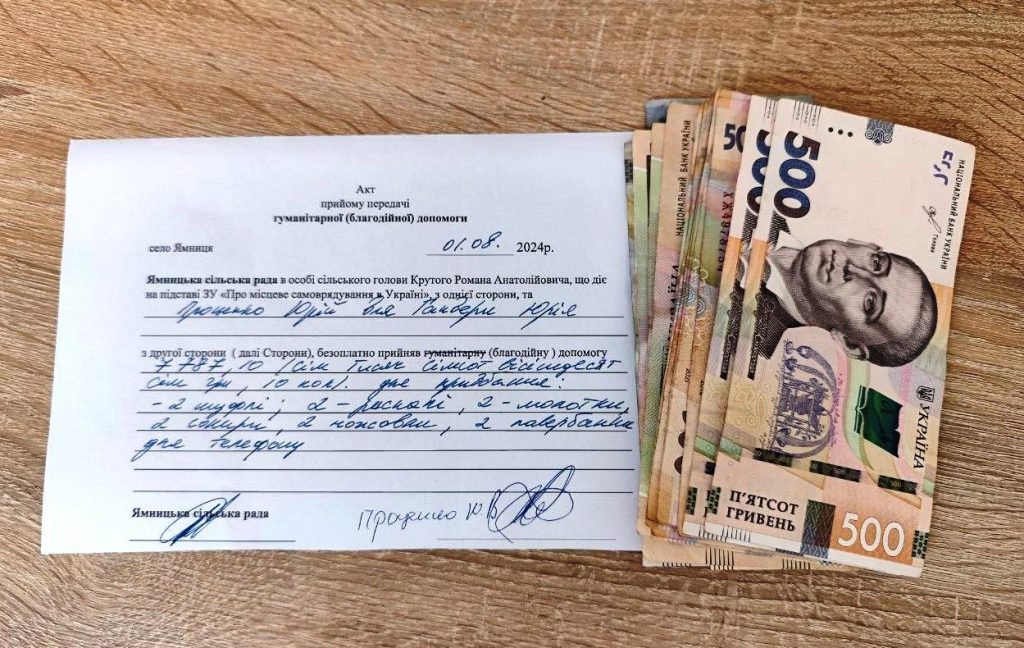 Акт
прийому передачі
гуманітарної (благодійної) допомоги
село Ямниця 01.08. 2024р.
Ямницька сільська рада в особі сільського голови Крутого Романа Анатолійовича, що діє
на підставі ЗУ «Про місцеве самоврядування в Україні», з однієї сторони, та
Проценко Юрій для Юрія
з другої сторони ( далі Сторони), безоплатно прийняв гуманітарну (благодійну ) допомогу
7 787,10 (сім тисяч сімсот вісімдесят
сім грн, 10 коп). для придбання:
- 2 шуфлі; 2 - , 2 - молотки,
2 сокири, 2 ножовки, 2 павербанки
для телефону
Ямницька сільська рада Проценко Ю.В
500
500
500
ХЖ
НАЦІОНАЛЬНИЙ БАНК УКРАЇНИ
НАЦІОНАЛЬНИЙ БАНК УКРАЇНИ
Голова
УКРАЇНА
П'ЯТСОТ
ГРИВЕНЬ
500